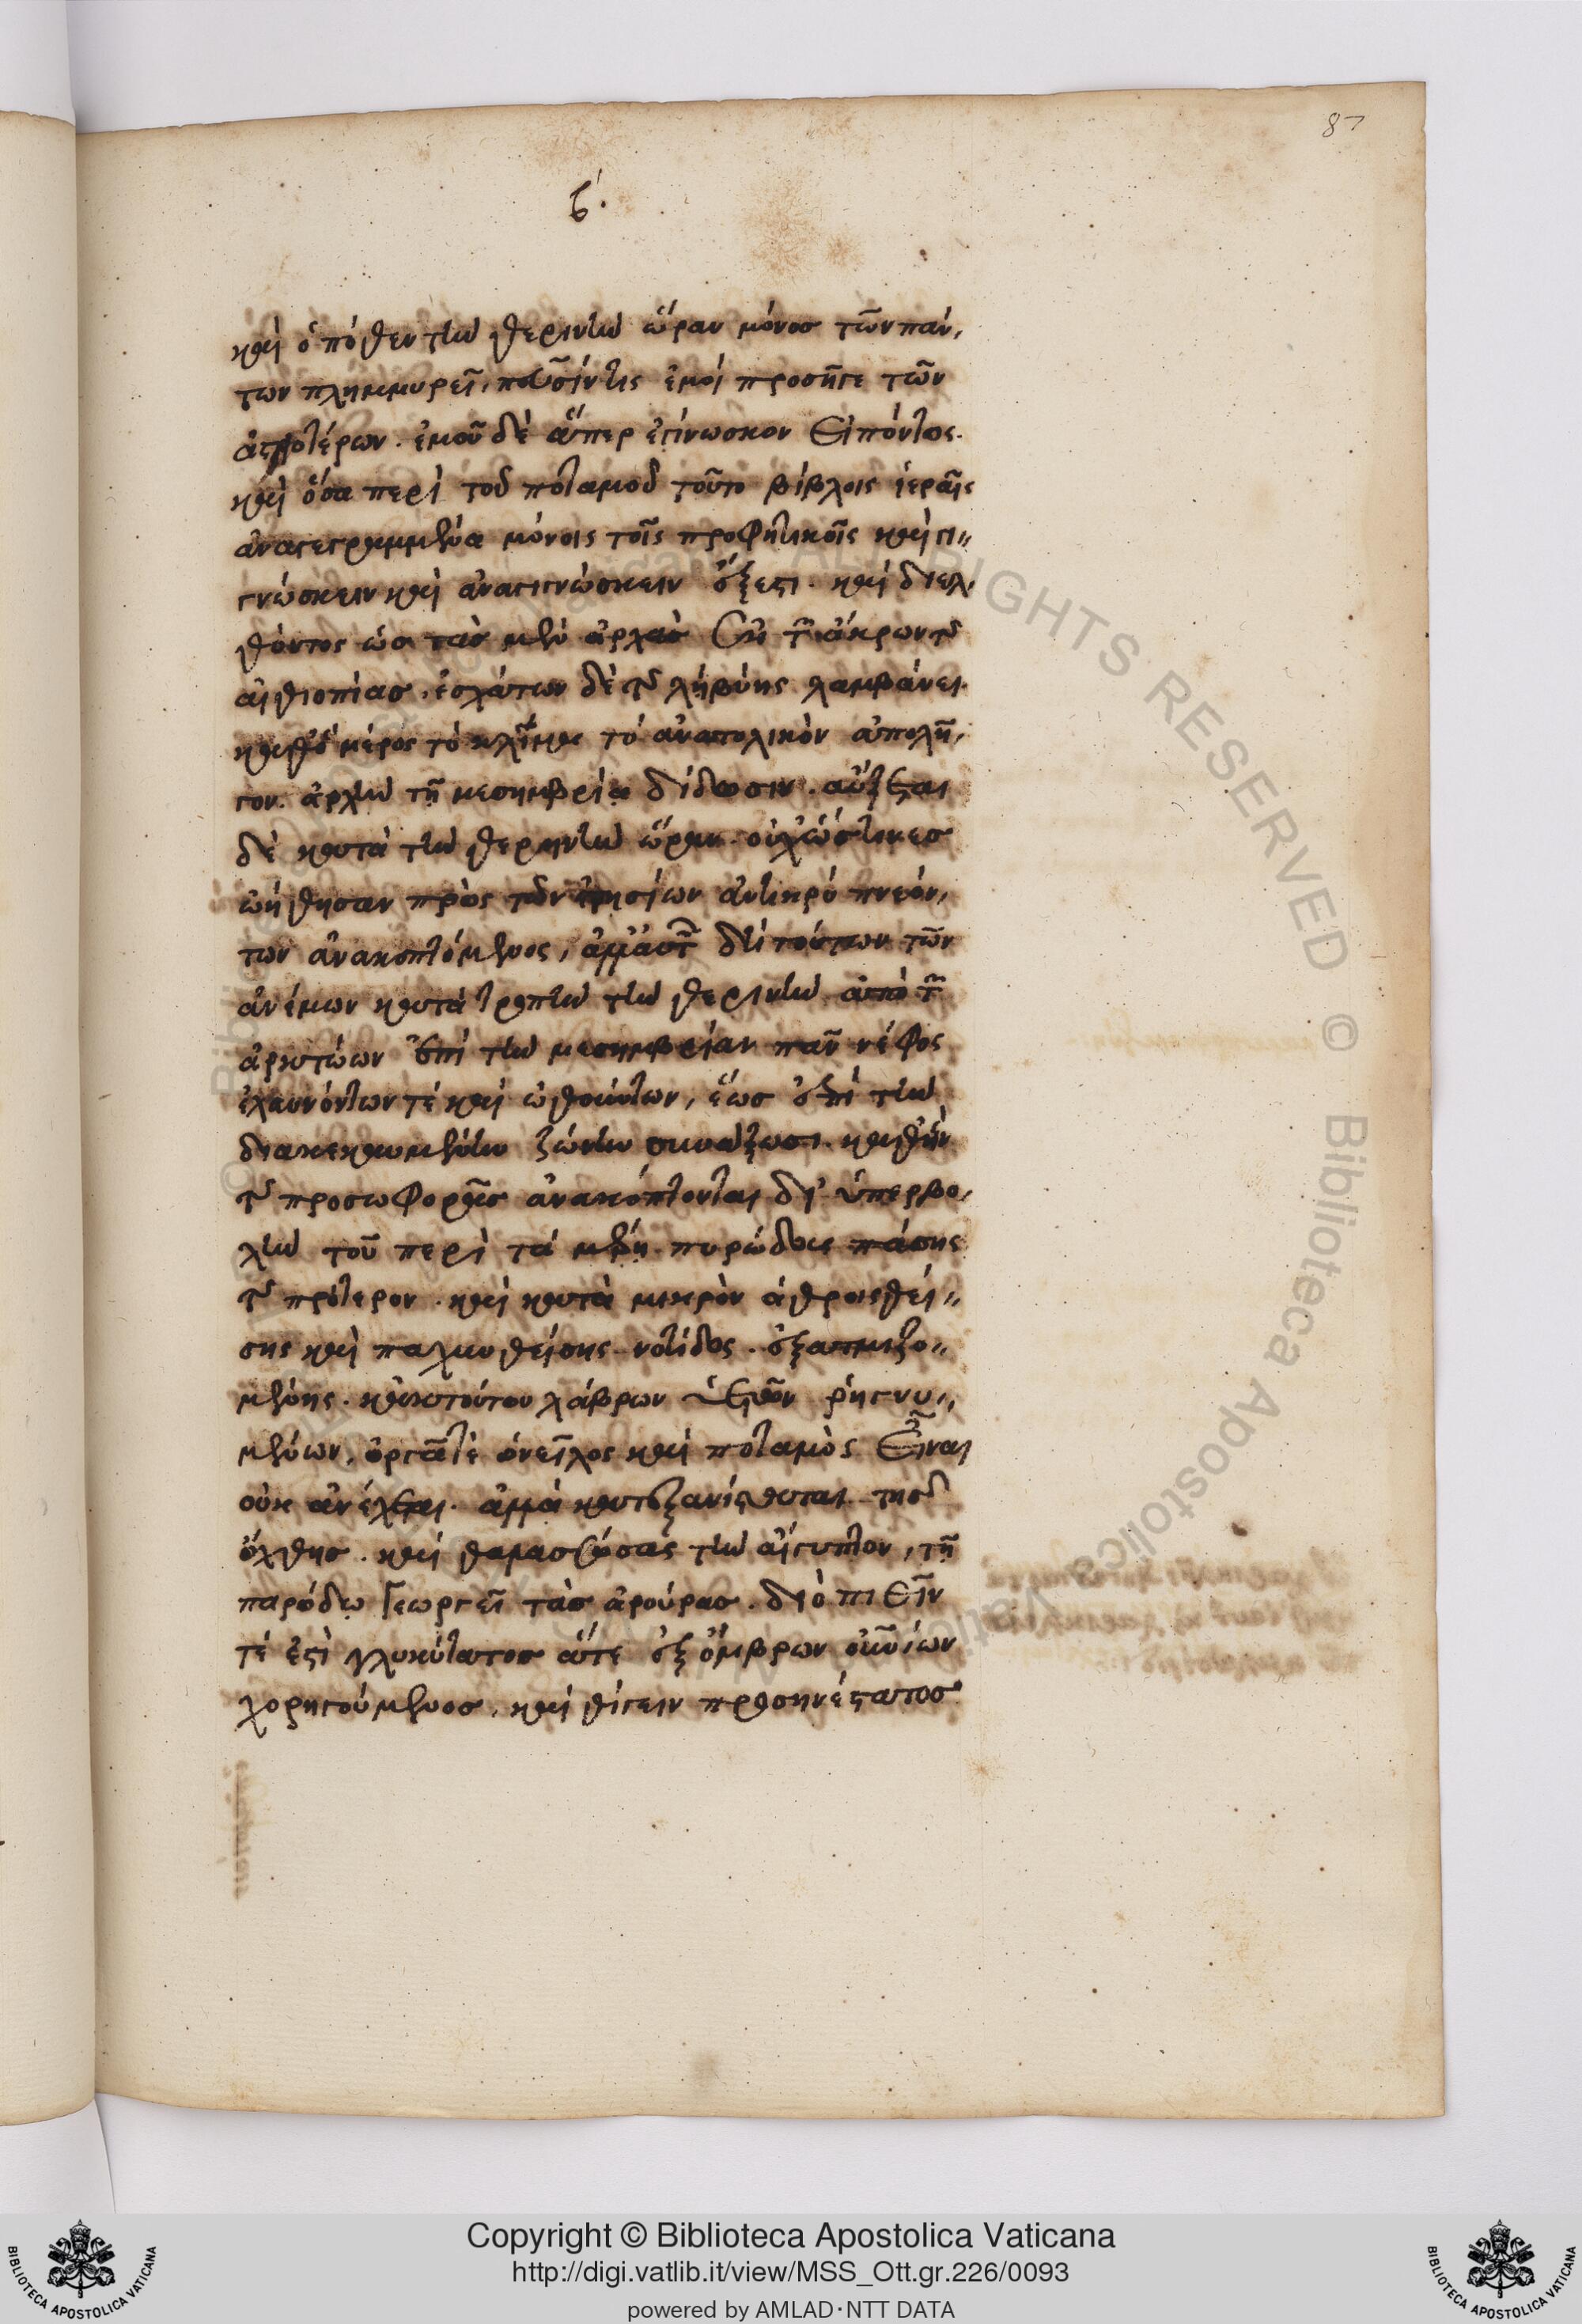 87
β′.
καὶ ὁπόθεν τὴν θερινὴν ὥραν μόνος τῶν πάν,
των πλημμυρεῖ, πεῦσίν τις ἐμοὶ προσῆγε τῶν
ἀστιοτέρων. ἐμοῦ δὲ ἅπερ ἐγίνωσκον εἰπόντος.
καὶ ὅσα περὶ τοῦ ποταμοῦ τούτου βίβλοις ἱεραῖς
ἀναγεγραμμένα μόνοις τοῖς προφητικοῖς καὶ γι„
γνώσκειν καὶ ἀναγιγνώσκειν ἔξεστι. καὶ διελ,
θόντος ὡς τὰς μὲν ἀρχὰς ἐκ τῶν ἄκρων τῆς
αἰθιοπίας. ἐσχάτων δὲ τῆς ληβύης λαμβάνει.
καθ' ὃ μέρος τὸ κλῖμα τὸ ἀνατολικὸν ἀπολῆ,
γον. ἀρχὴν τῇ μεσημβρίᾳ δίδωσιν. αὔξεται
δὲ κατὰ τὴν θερινὴν ὥραν. οὐχ ὥς τινες
ὠήθησαν πρὸς τῶν ἐτησίων ἀντικρὺ πνεόν,
των ἀνακοπτόμενος, ἀλλ' αὐτῶν δὴ τούτων τῶν
ἀνέμων κατὰ τροπὴν τὴν θερινὴν ἀπὸ τῶν
ἀρκτώων ἐπὶ τὴν μεσημβρίαν πᾶν νέφος
ἐλαυνόντων τὲ καὶ ὠθούντων, ἕως ἐπὶ τὴν
διακεκαυμένην ζώνην συνάξωσι. καθ' ἣν
τῆς προσωφορᾶς ἀνακόπτονται δι' ὑπερβο,
λὴν τοῦ περὶ τὰ μέρη πυρώδους πάσης
τῆς πρότερον. καὶ κατὰ μικρὸν ἀθροισθεί„
σης καὶ παχυνθείσης νοτίδος. ἐξατμιζο„
μένης. κἀκ τούτου λάβρων ὑετῶν ῥηγνυ„
μένων, ὀργᾶ τὲ ὁ νεῖλος καὶ ποταμὸς εἶναι
οὐκ ἀνέχεται. ἀλλὰ κατεξανίσταται τῆς
ὄχθης. καὶ θαλασσώσας τὴν αἴγυπτον, τῇ
παρόδῳ γεωργεῖ τὰς ἀρούρας. διὸ πιεῖν
τέ ἐστι γλυκύτατος ἅτε ἐξ ὄμβρων οὐρανίων
χορηγούμενος. καὶ θίγειν προσηνέστατος
Copyright © Biblioteca Apostolica Vaticana
http://digi.vatlib.it/view/MSS_Ott.gr.226/0093
powered by AMLAD·NTT DATA